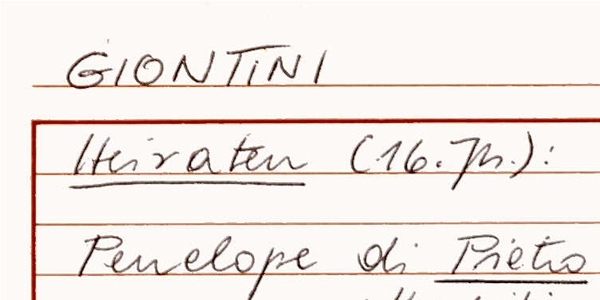 GIONTINI
Heiraten (16. Jh.):
Penelope di Pietro